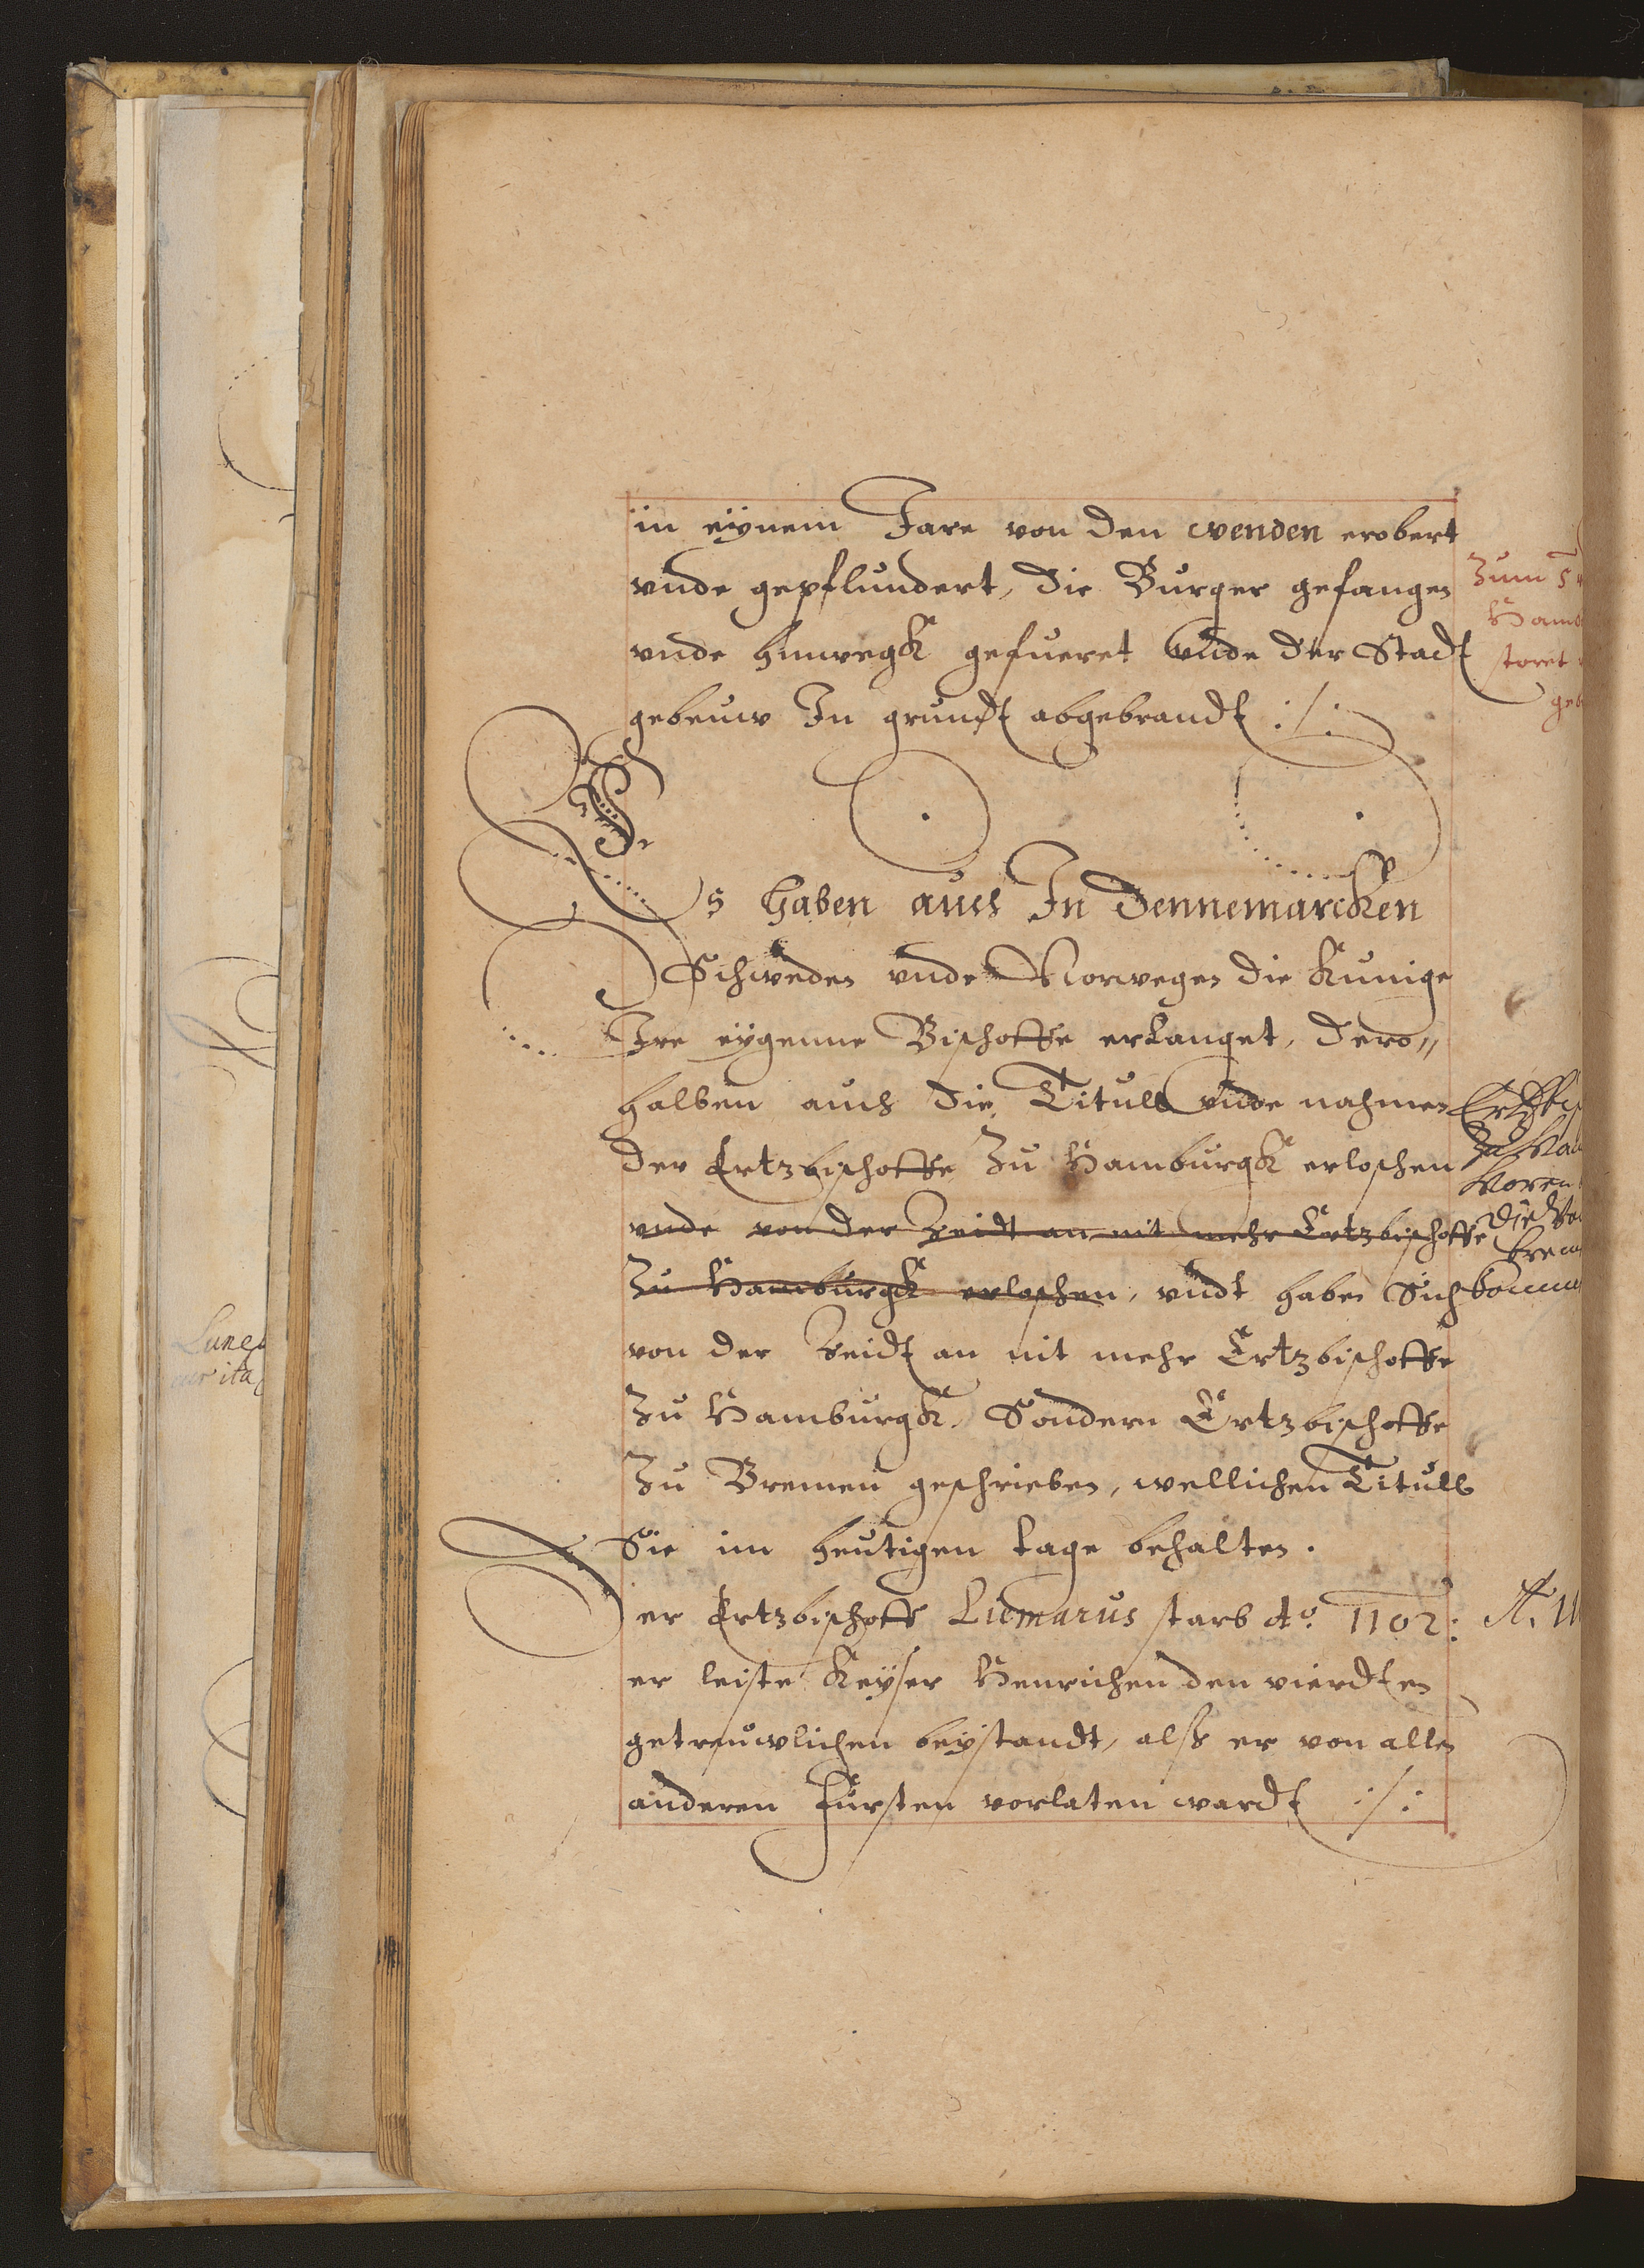 in eÿnem Jare von den wenden erobert
vnde gepflundert, die Burger gefangen
vnde hinwegk gefueret vnde der Stadt
gebeuw In grundt abgebrandt :/:
Es haben auch In Dennemarcken
Schweden vnde Norwegen die Kunige
Ire eÿgenne Bischoffe erlanget, dero„
halben auch die Titull vnde nahmen
der Ertzbischoffe Zu Hamburgk erloschen
vnde von der Zeidt an nit mehr Ertzbischoffe
Zu Hamburgk erloschen, vndt haben Sich
von der Zeidt an nit mehr Ertzbischoffe
Zu Hamburgk, Sondern Ertzbischoffe
Zu Bremen geschrieben, wellichen Titull
Sie im heutigen tage behalten.
Der Ertzbischoff Liemarus starb Ao. 1102:
er leiste Keÿser Henrichen den vierdten
getreuwlichen beÿstandt, alß er von allen
anderen Fursten vorlaten wardt :/:
Zum 5
Hamb
storet
geb
Ertzbis
Zu Ha
A. 11
Lune